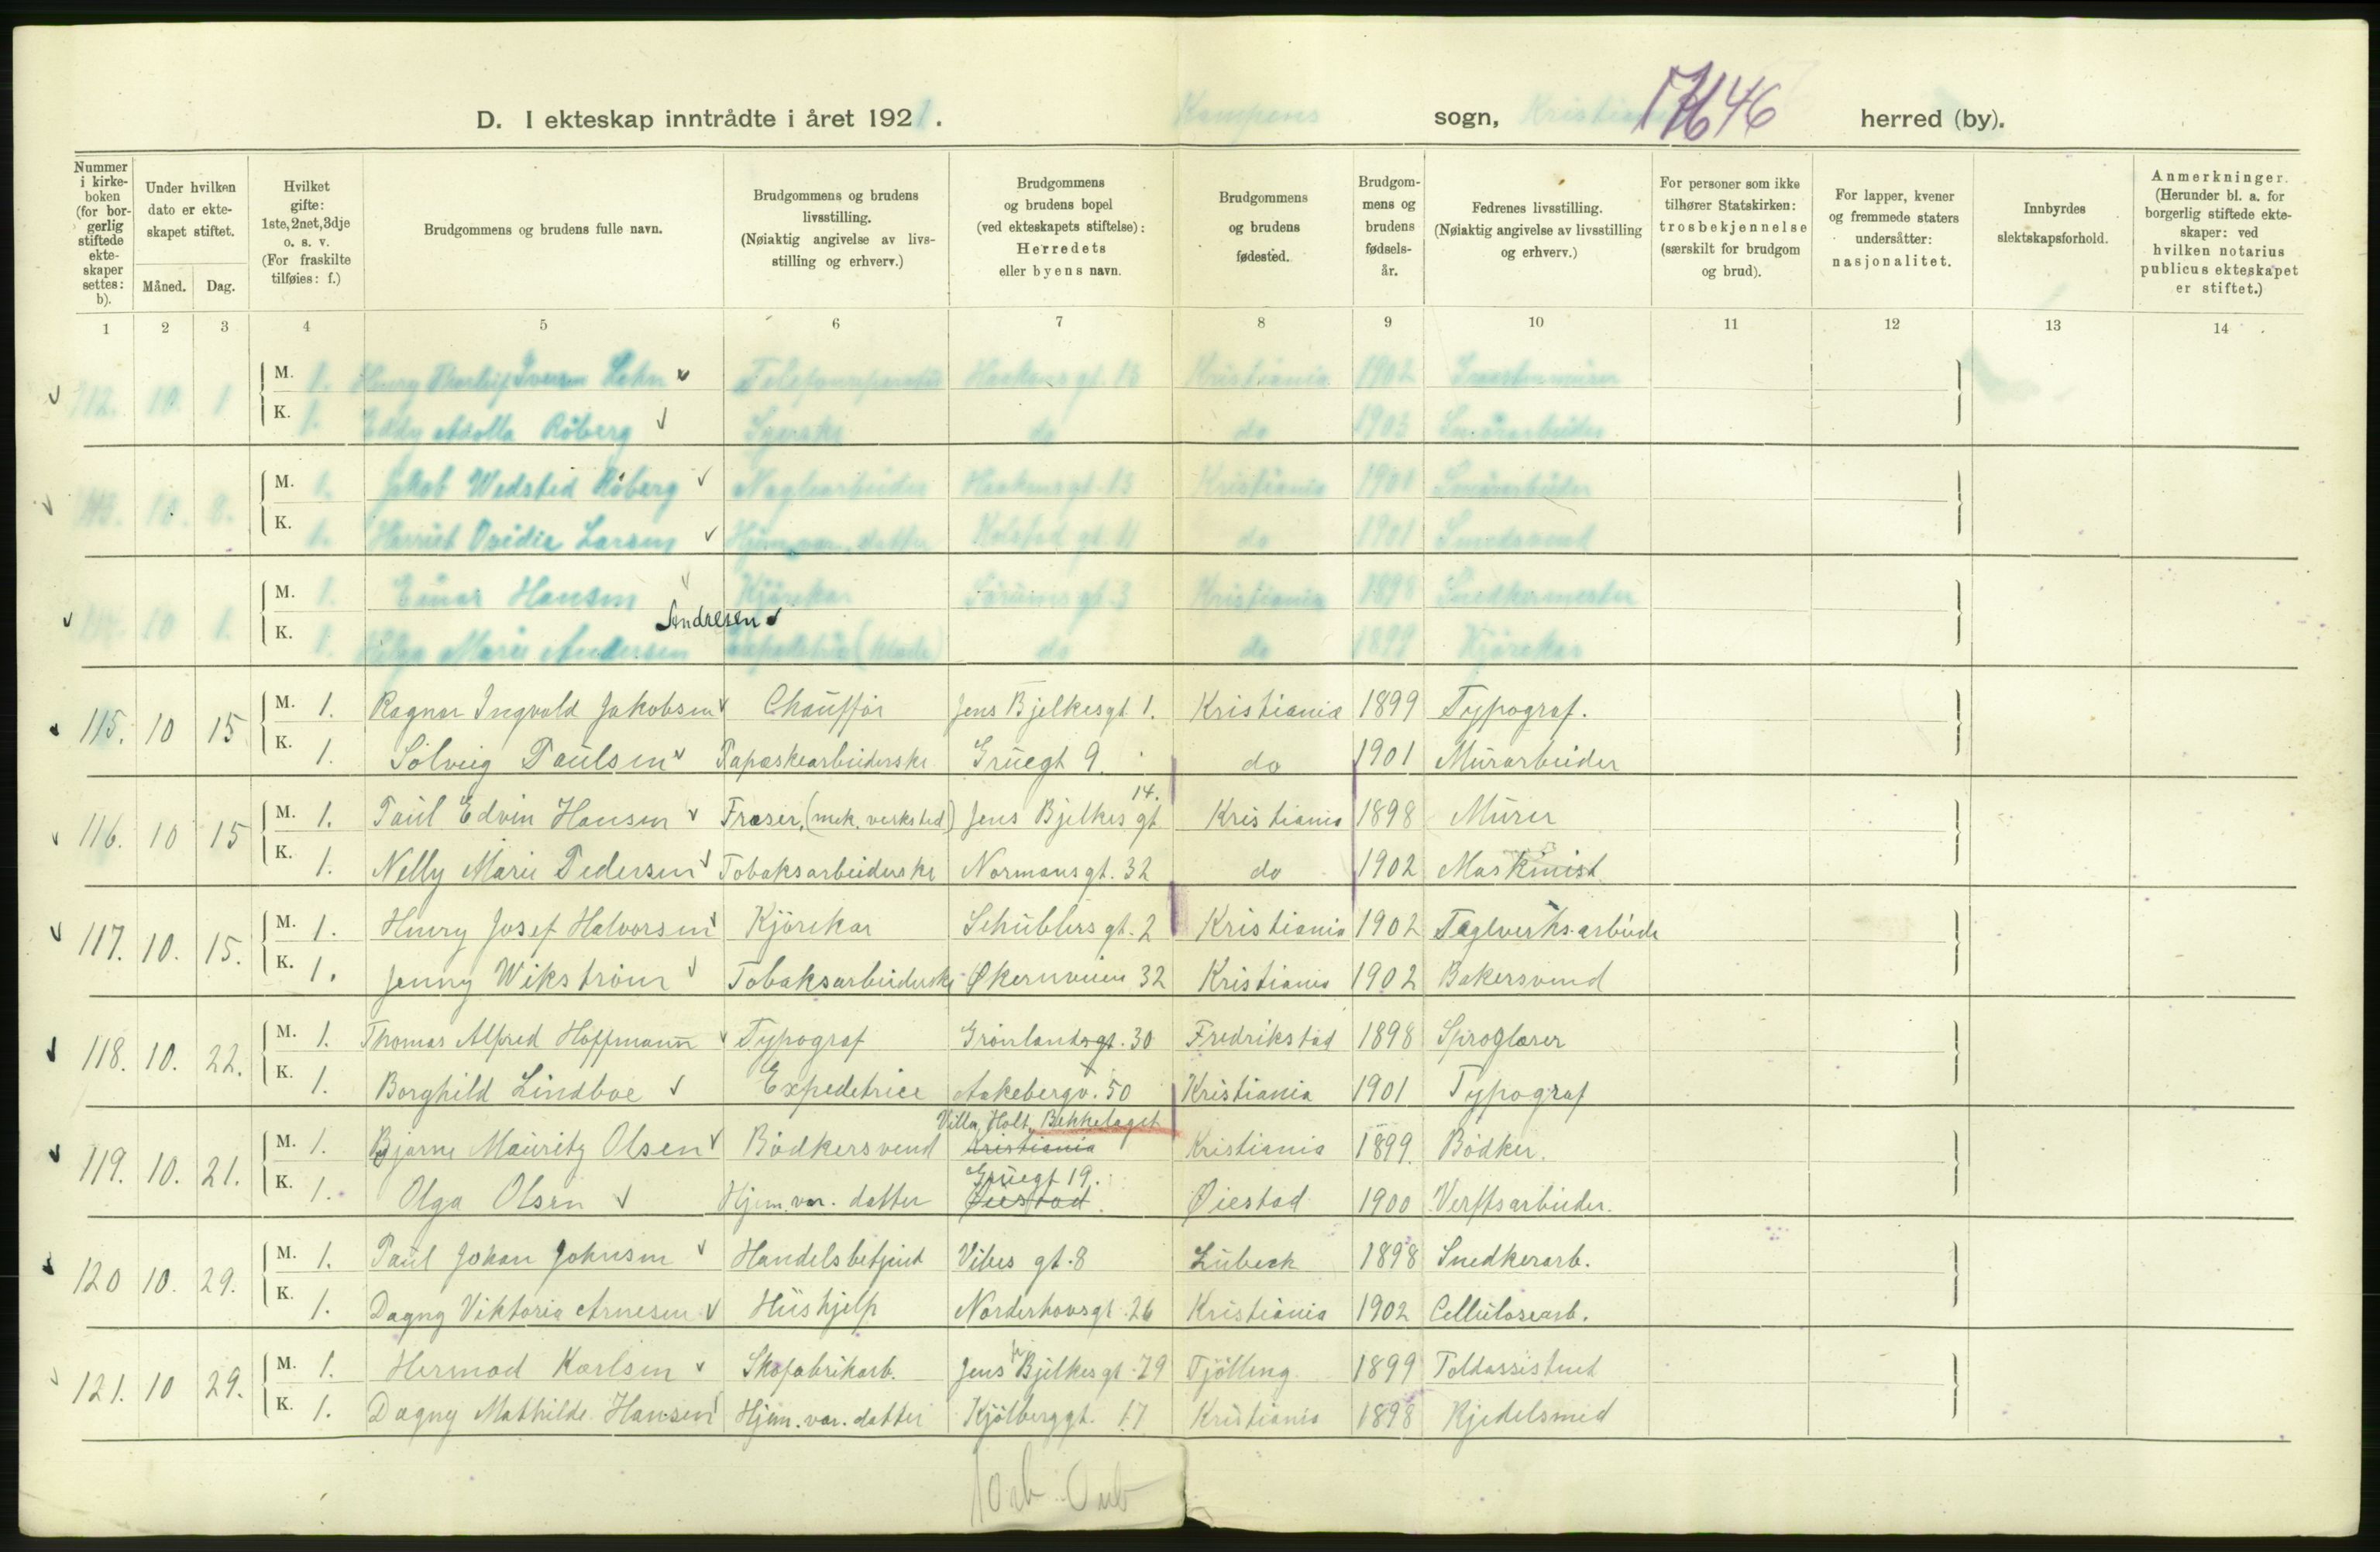 D. I ekteskap inntrådte i året 1921. Kampens sogn, Kristiania herred (by).
17646
Nummer i kirkeboken (for borgerlig stiftede ekteskaper settes: b).
Under hvilken dato er ekteskapet stiftet.
Måned. Dag.
Hvilket gifte: 1ste, 2net, 3dje o. s. v. (For fraskilte tilføies: f.)
Brudgommens og brudens fulle navn.
Brudgommens og brudens livsstilling. (Nøiaktig angivelse av livsstilling og erhverv.)
Brudgommens og brudens bopel (ved ekteskapets stiftelse): Herredets eller byens navn.
Brudgommens og brudens fødested.
Brudgommens og brudens fødselsår.
Fedrenes livsstilling. (Nøiaktig angivelse av livsstilling og erhverv.)
For personer som ikke tilhører Statskirken: trosbekjennelse (særskilt for brudgom og brud).
For lapper, kvener og fremmede staters undersåtter: nasjonalitet.
Innbyrdes slektskapsforhold.
Anmerkninger. (Herunder bl. a. for borgerlig stiftede ekteskaper: ved hvilken notarius publicus ekteskapet er stiftet.)
1 2 3 4 5 6 7 8 9 10 11 12 13 14
112. 10 1 M. 1. Henry Thorleif Iversen Hakens gt. 15 Kristiania 1902
K. 1. Eddy Røberg Syerske do do 1903 Småarbeider
113. 10. 8. M. 1. Jakob Wedsted Røberg Hakons gt. 15 Kristiania 1901 Småarbeider
K. 1. Harriet Ovidia Larsen Hjem.vær. datter Kolstad gt. 11 do 1901 Smedsvend
114. 10 1. M. 1. Einar Hansen Kjørekar Sørumsgt. 3 Kristiania 1898 Snedkermester
Andresen
K. 1. Helga Marie Andersen do do 1899 Kjørekar
115. 10 15 M. 1. Ragnar Ingvald Jakobsen Chauffør Jens Bjelkesgt 1. Kristiania 1899 Typograf.
K. 1. Solveig Paulsen Papæskearbeiderske Gruegt 9. do 1901 Murarbeider
14.
116. 10 15 M. 1. Paul Edvin Hansen Fraser, (mek. verksted) Jens Bjelkes gt Kristiania 1898 Murer
K. 1. Nelly Marie Pedersen Tobaksarbeiderske Normansgt. 32 do 1902 Maskinist
117. 10. 15. M. 1. Henry Josef Halvorsen Kjørekar Schüblers gt. 2 Kristiania 1902 Teglverks.arbeide
K. 1. Jenny Wikstrøm Tobaksarbeiderske Økernveien 32 Kristiania 1902 Bakersvend
118. 10. 22. M. 1. Thomas Alfred Hoffmann Typograf Grønlandsgt. 30 Fredrikstad 1898 Sproglærer
K. 1. Borghild Lindboe Expeditrice Aakebergv. 50 Kristiania 1901 Typograf
Villa Holt, Bekkelaget
119. 10. 21. M. 1. Bjarne Mauritz Olsen Bødkersvend Kristiania Kristiania 1899. Bødker.
Gruegt 19.
K. 1. Olga Olsen Hjem. vær. datter Øiestad. Øiestad 1900 Verftsarbeider.
120 10. 29. M. 1. Paul Johan Johnsen Handelsbetjent Vibes gt. 8 Lübeck 1898 Snedkerarb.
K. 1. Dagny Viktoria Arnesen Hushjelp Norderhovsgt. 26 Kristiania 1902 Cellulosearb.
121. 10 29. M. 1. Hermod Karlsen Skofabrikarb. Jens Bjelkesgt. 79 Tjølling 1899 Toldassistent
K. 1. Dagny Mathilde Hansen Hjem. vær. datter Kjølberggt. 17 Kristiania 1898 Kjedelsmed